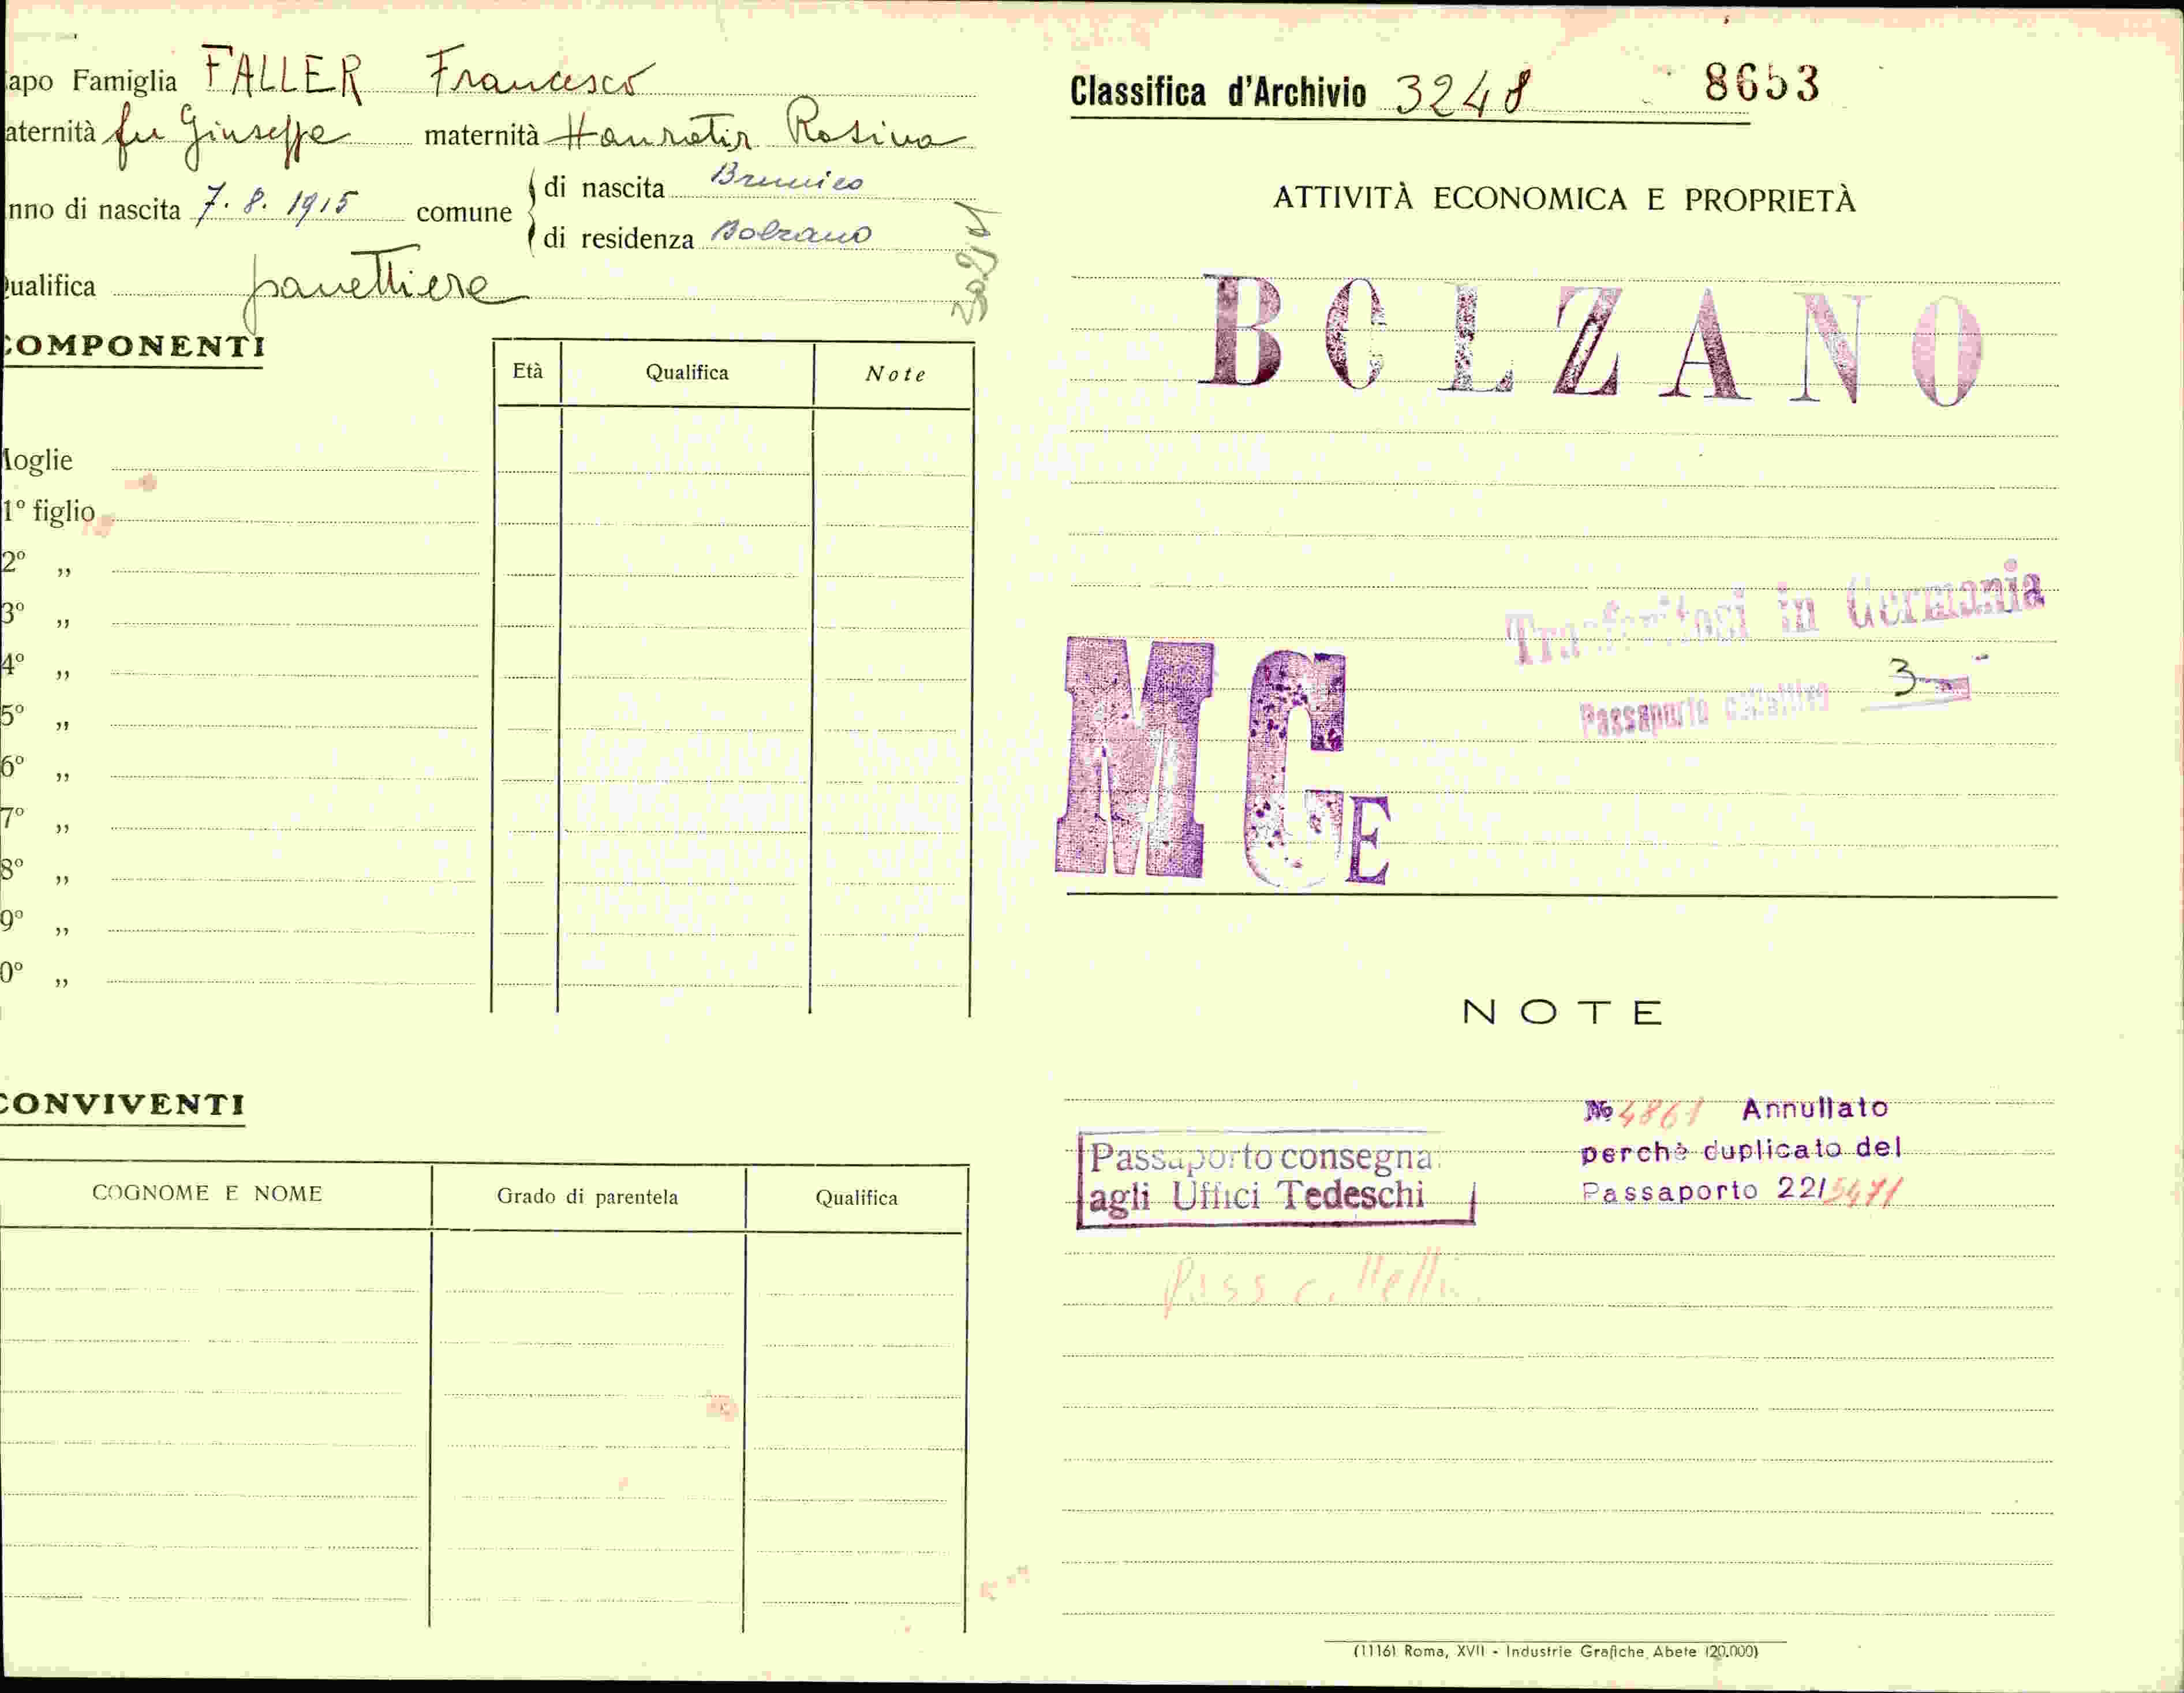 apo Famiglia FALLER Francesco
aternità fu Giuseppe maternità Rosina
nno di nascita 7.8.1915 comune di nascita Brunico
di residenza Bolzano
ualifica panettiere
COMPONENTI
Età Qualifica Note
loglie
1º figlio
2º „
3º „
4º „
5º „
6º „
7º „
8º „
9º „
0º „
CONVIVENTI
COGNOME E NOME Grado di parentela Qualifica
Classifica d'Archivio 3248 8653
ATTIVITÀ ECONOMICA E PROPRIETÀ
BOLZANO
Trasferitosi in Germania
Passaporto collettivo 3
MCE
NOTE
No 4861 Annullato
perchè duplicato del
Passaporto 22/5471
Passaporto consegna
agli Uffici Tedeschi
(1116) Roma, XVII - Industrie Grafiche Abete (20.000)